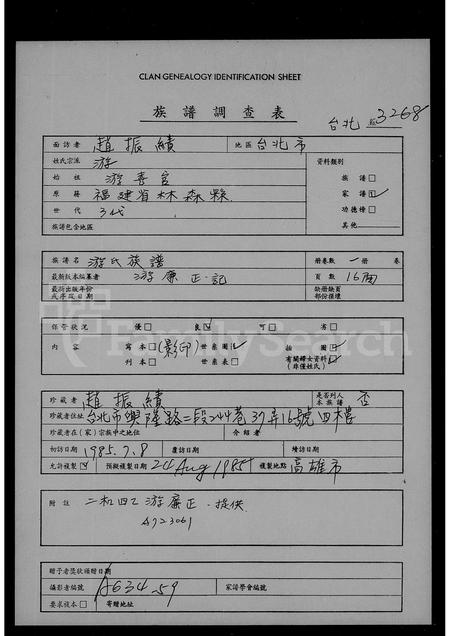 CLAN GENEALOGY IDENTIFICATION SHEET
族譜調查表
台北 3268
面訪者 趙振績 地區 台北市
姓氏宗派 游
始祖 游善官
原籍 福建省林森縣
世代 3代
族譜包含地區
資料類別
族譜 □
家譜 ☑
功德榜 □
其他
族譜名 游氏族譜 冊卷數 一冊 卷
最新版本編纂者 游廉正 記 頁數 16
最新出版年份或序跋日期 缺冊缺頁部份損壞
保管狀況 優 □ 良 ☑ 可 □ 劣 □
內容 寫本 □ (影印) 世系圖 ☑ 插圖 ☑
刊本 □ 世系表 □ 有關婦女資料 ☑ (非僅姓氏)
珍藏者 趙振績 是否列入本族譜 否
珍藏者住址 台北市興隆路二段244巷37弄16號四樓
珍藏者在(家)宗族中之地位 介紹者
初訪日期 1985.7.8 覆訪日期 續訪日期
允許複製 ☑ 預擬複製日期 24 Aug 1985 複製地點 高雄市
附註 二和四乙游廉正.提供
A723061
贈予者獎狀頒贈日期
攝影者編號 A634-59 家譜學會編號
要求複本 □ 寄贈地址
FamilySearch